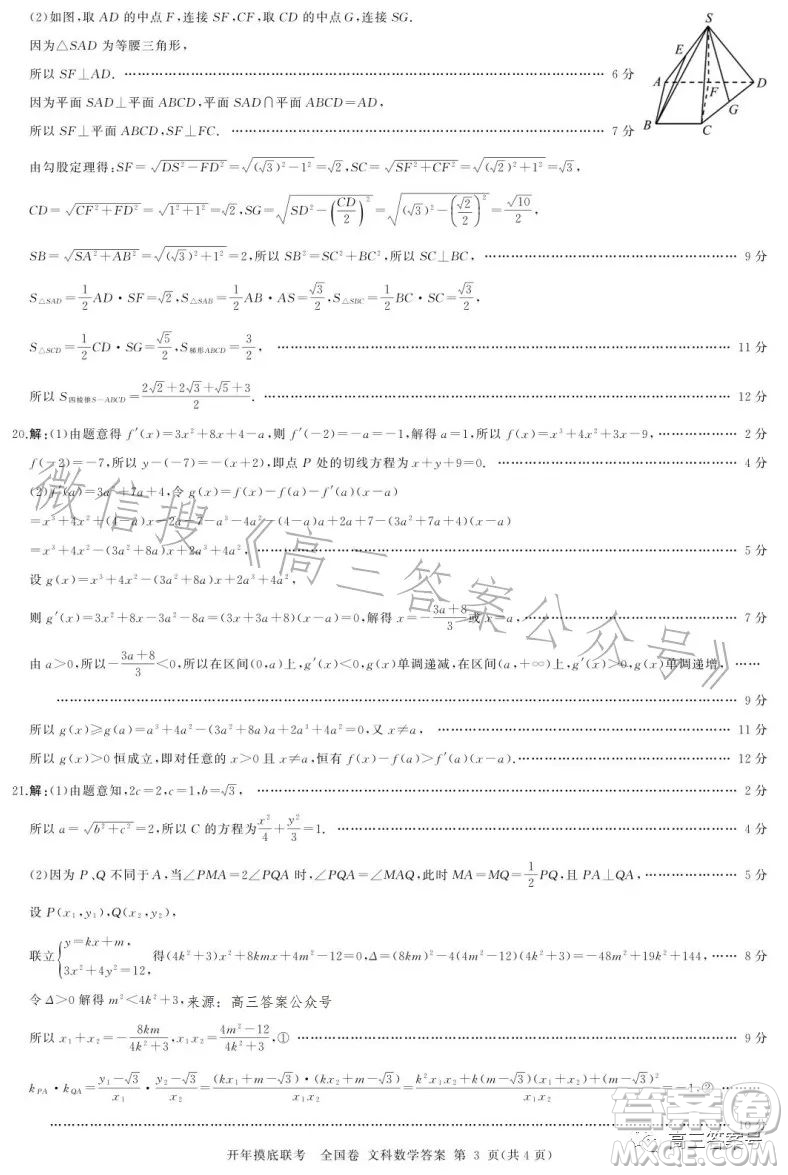 (2)如图,取 AD 的中点 F,连接 SF,CF,取 CD 的中点 G,连接 SG.
因为△SAD 为等腰三角形,
所以 SF⊥AD. …… 6 分
因为平面 SAD⊥平面 ABCD,平面 SAD∩平面 ABCD=AD,
所以 SF⊥平面 ABCD,SF⊥FC. …… 7 分
S
E
A
F
D
G
B
C
由勾股定理得:SF=√(DS²-FD²)=√((√3)²-1²)=√2,SC=√(SF²+CF²)=√((√2)²+1²)=√3,
CD=√(CF²+FD²)=√(1²+1²)=√2,SG=√(SD²-(CD/2)²)=√((√3)²-(√2/2)²)=√10/2,
SB=√(SA²+AB²)=√((√3)²+1²)=2,所以 SB²=SC²+BC²,所以 SC⊥BC, …… 9 分
S△SAD=1/2 AD·SF=√2,S△SAB=1/2 AB·AS=√3/2,S△SBC=1/2 BC·SC=√3/2,
S△SCD=1/2 CD·SG=√5/2,S梯形ABCD=3/2, …… 11 分
所以 S四棱锥S-ABCD=(2√2+2√3+√5+3)/2. …… 12 分
20.解:(1)由题意得 f′(x)=3x²+8x+4-a,则 f′(-2)=-a=-1,解得 a=1,所以 f(x)=x³+4x²+3x-9, …… 2 分
f(-2)=-7,所以 y-(-7)=-(x+2),即点 P 处的切线方程为 x+y+9=0. …… 4 分
(2)f′(a)=3a²+7a+4,令 g(x)=f(x)-f(a)-f′(a)(x-a)
=x³+4x²+(4-a)x-2a-7-a³-4a²-(4-a)a+2a+7-(3a²+7a+4)(x-a)
=x³+4x²-(3a²+8a)x+2a³+4a², …… 5 分
设 g(x)=x³+4x²-(3a²+8a)x+2a³+4a²,
则 g′(x)=3x²+8x-3a²-8a=(3x+3a+8)(x-a)=0,解得 x=-(3a+8)/3 或 x=a, …… 7 分
由 a>0,所以-(3a+8)/3<0,所以在区间(0,a)上,g′(x)<0,g(x)单调递减,在区间(a,+∞)上,g′(x)>0,g(x)单调递增, ……
…… 9 分
所以 g(x)≥g(a)=a³+4a²-(3a²+8a)a+2a³+4a²=0,又 x≠a, …… 11 分
所以 g(x)>0 恒成立,即对任意的 x>0 且 x≠a,恒有 f(x)-f(a)>f′(a)(x-a). …… 12 分
21.解:(1)由题意知,2c=2,c=1,b=√3, …… 2 分
所以 a=√(b²+c²)=2,所以 C 的方程为 x²/4+y²/3=1. …… 4 分
(2)因为 P、Q 不同于 A,当∠PMA=2∠PQA 时,∠PQA=∠MAQ,此时 MA=MQ=1/2 PQ,且 PA⊥QA, …… 5 分
设 P(x₁,y₁),Q(x₂,y₂),
联立{y=kx+m, 3x²+4y²=12, 得(4k²+3)x²+8kmx+4m²-12=0,Δ=(8km)²-4(4m²-12)(4k²+3)=-48m²+19k²+144, …… 8 分
令 Δ>0 解得 m²<4k²+3,来源: 高三答案公众号
所以 x₁+x₂=-8km/(4k²+3),x₁x₂=(4m²-12)/(4k²+3),① …… 9 分
kPA·kQA=(y₁-√3)/x₁·(y₂-√3)/x₂=((kx₁+m-√3)·(kx₂+m-√3))/(x₁x₂)=(k²x₁x₂+k(m-√3)(x₁+x₂)+(m-√3)²)/(x₁x₂)=-1,② ……
…… 10 分
开年摸底联考 全国卷 文科数学答案 第 3 页(共 4 页)
微信搜《高三答案公众号》
答案圈
高三答案号